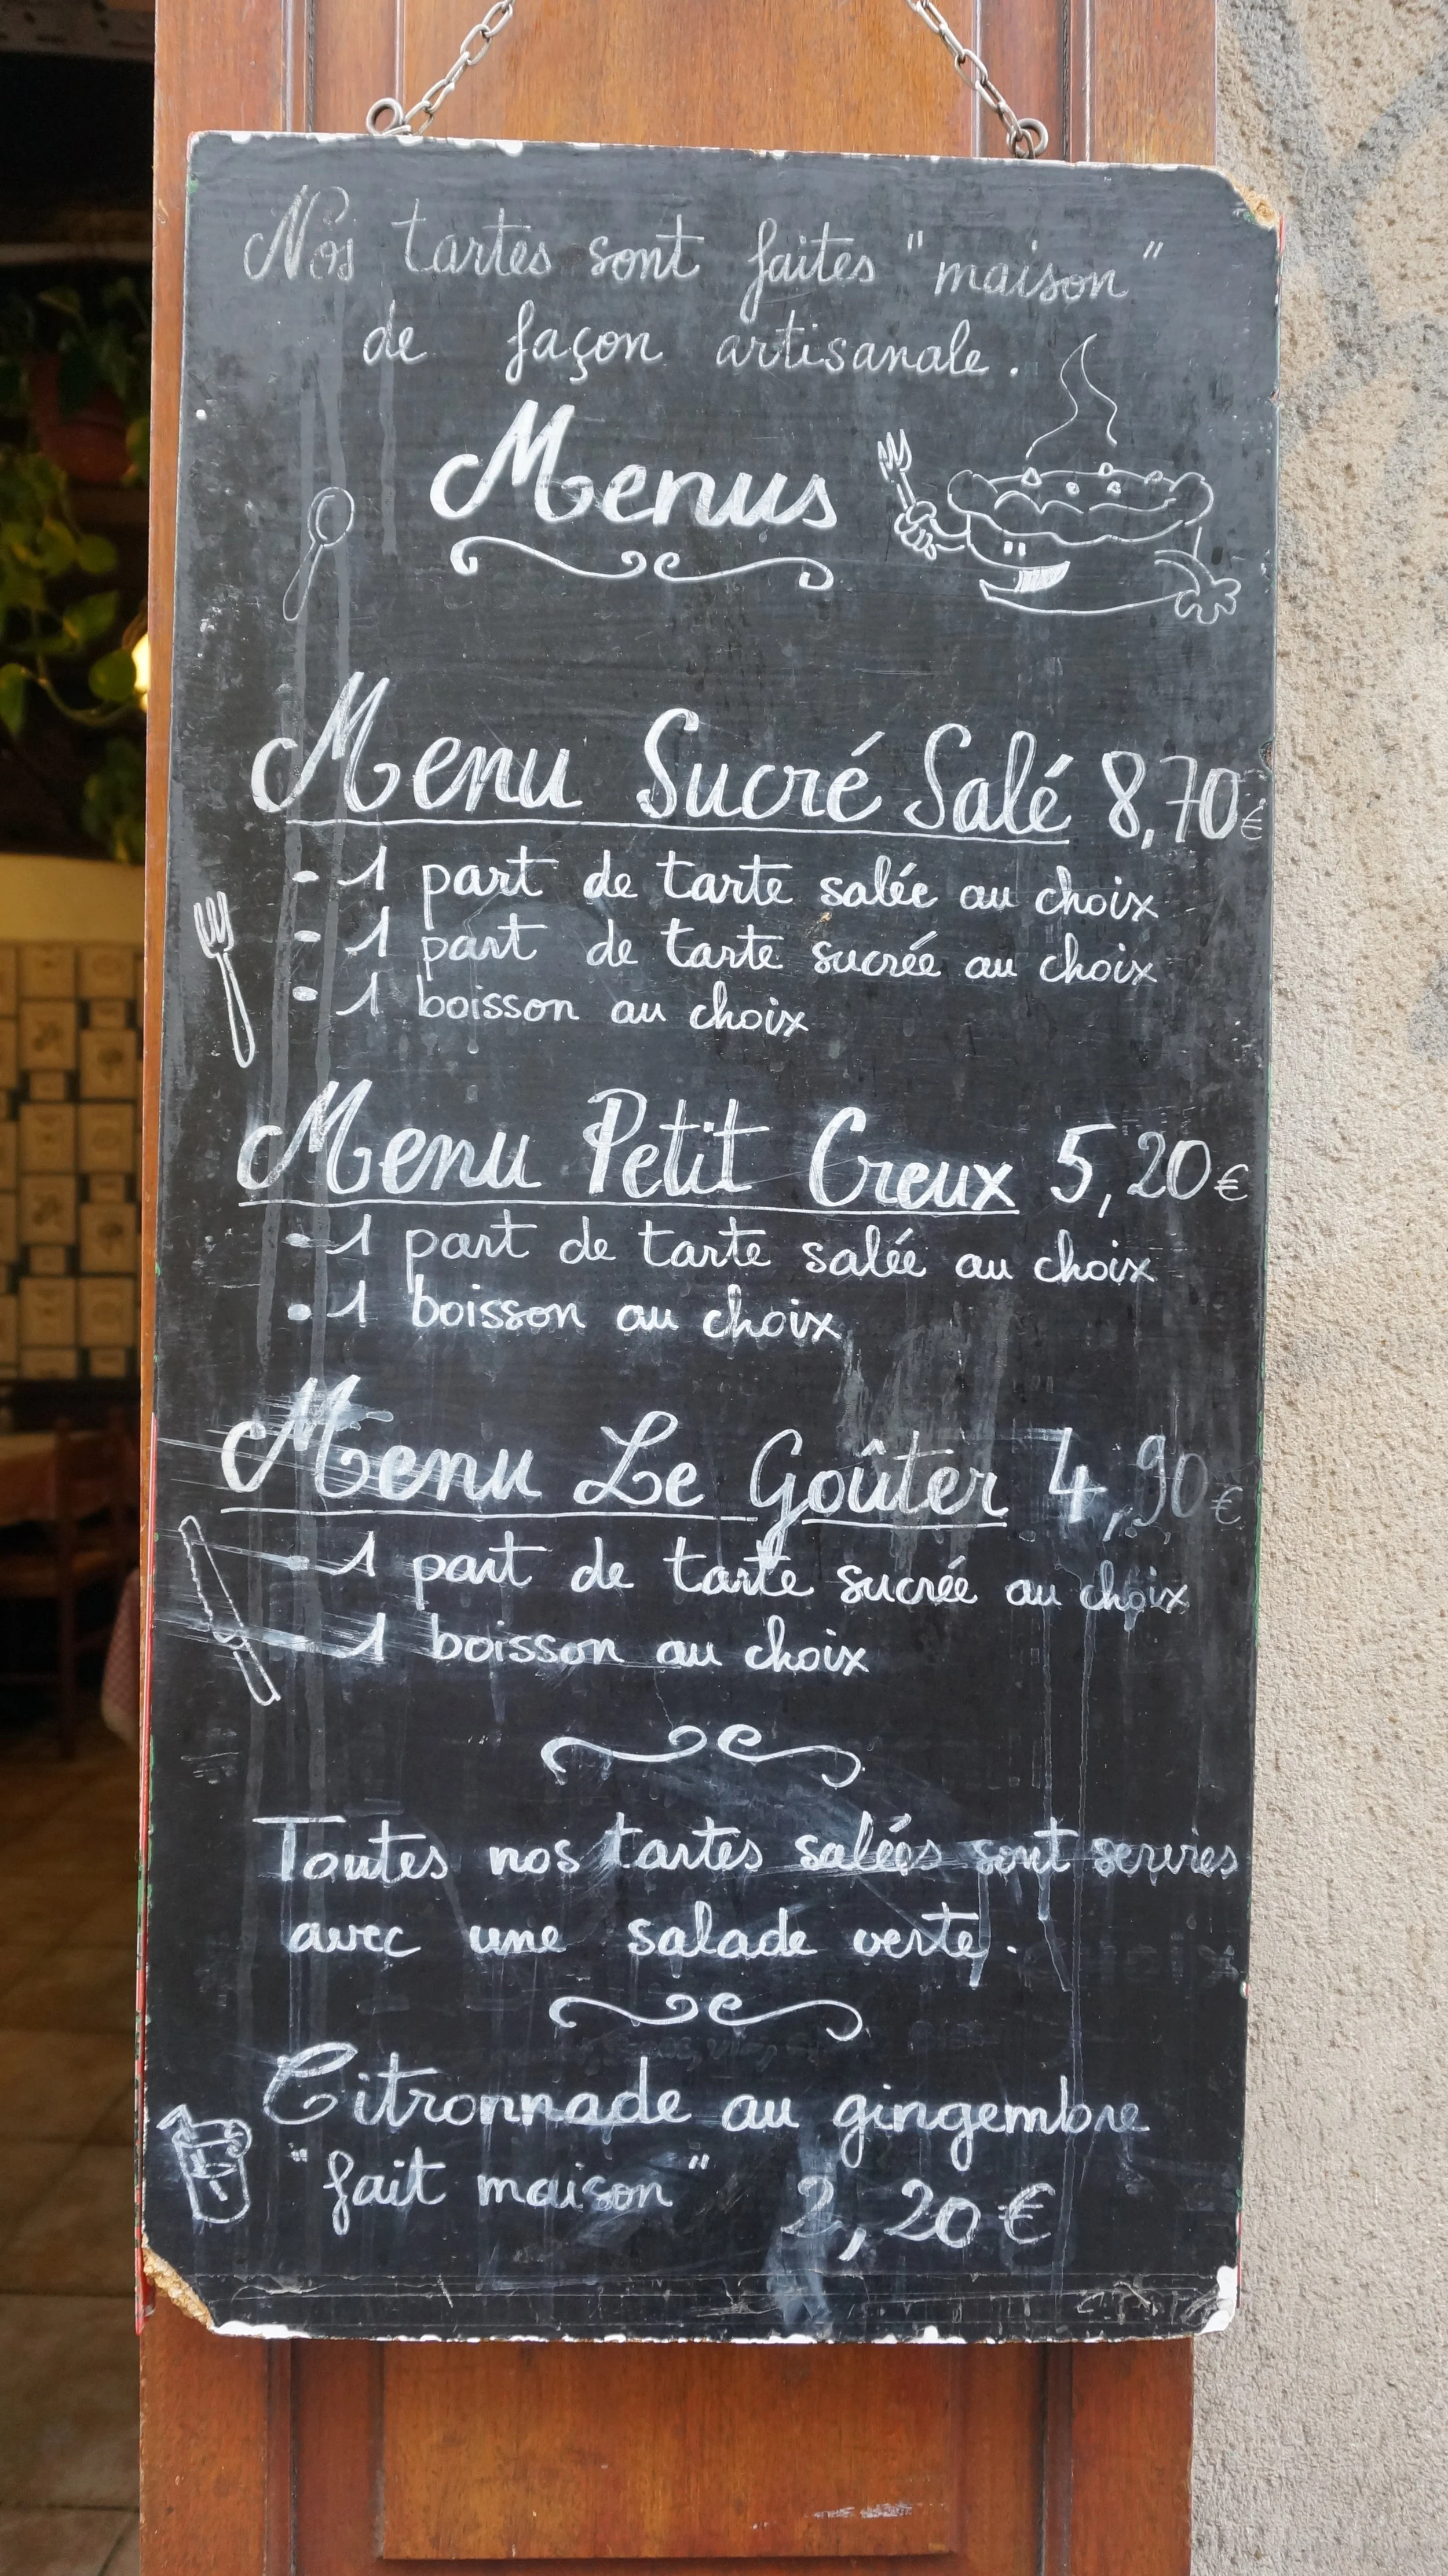 Nos tartes sont faites "maison"
de façon artisanale.
Menus
Menu Sucré Salé 8,70€
- 1 part de tarte salée au choix
- 1 part de tarte sucrée au choix
- 1 boisson au choix
Menu Petit Creux 5,20€
- 1 part de tarte salée au choix
- 1 boisson au choix
Menu Le Goûter 4,90€
- 1 part de tarte sucrée au choix
- 1 boisson au choix
Toutes nos tartes salées sont servies
avec une salade verte.
Citronnade au gingembre
"fait maison" 2,20€